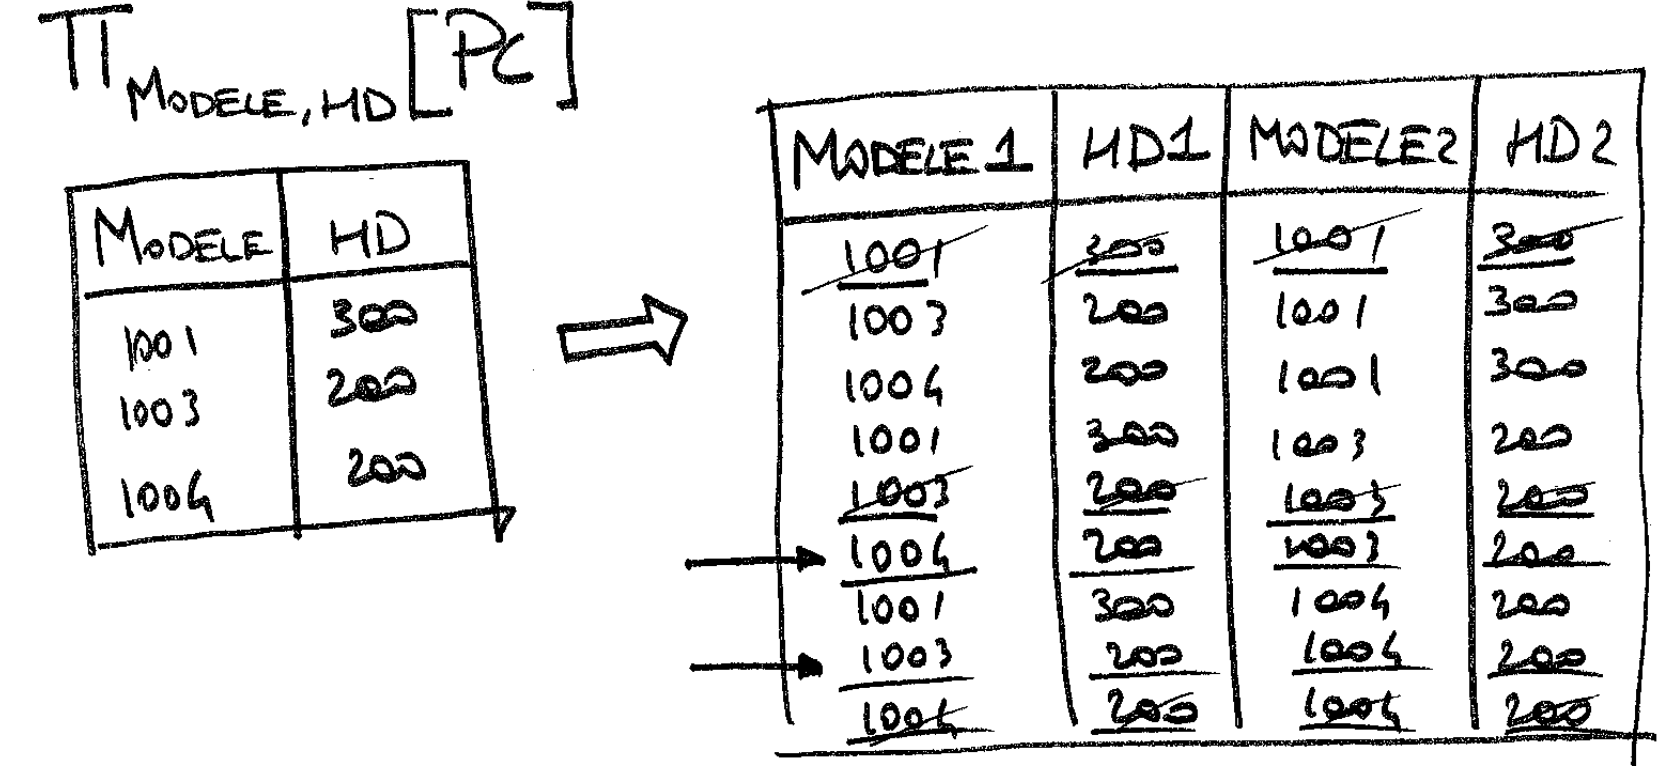 Π MODELE, HD [PC]
MODELE HD
1001 300
1003 200
1004 200
MODELE 1 HD1 MODELE2 HD2
1001 300 1001 300
1003 200 1001 300
1004 200 1001 300
1001 300 1003 200
1003 200 1003 200
1004 200 1003 200
1001 300 1004 200
1003 200 1004 200
1004 200 1004 200